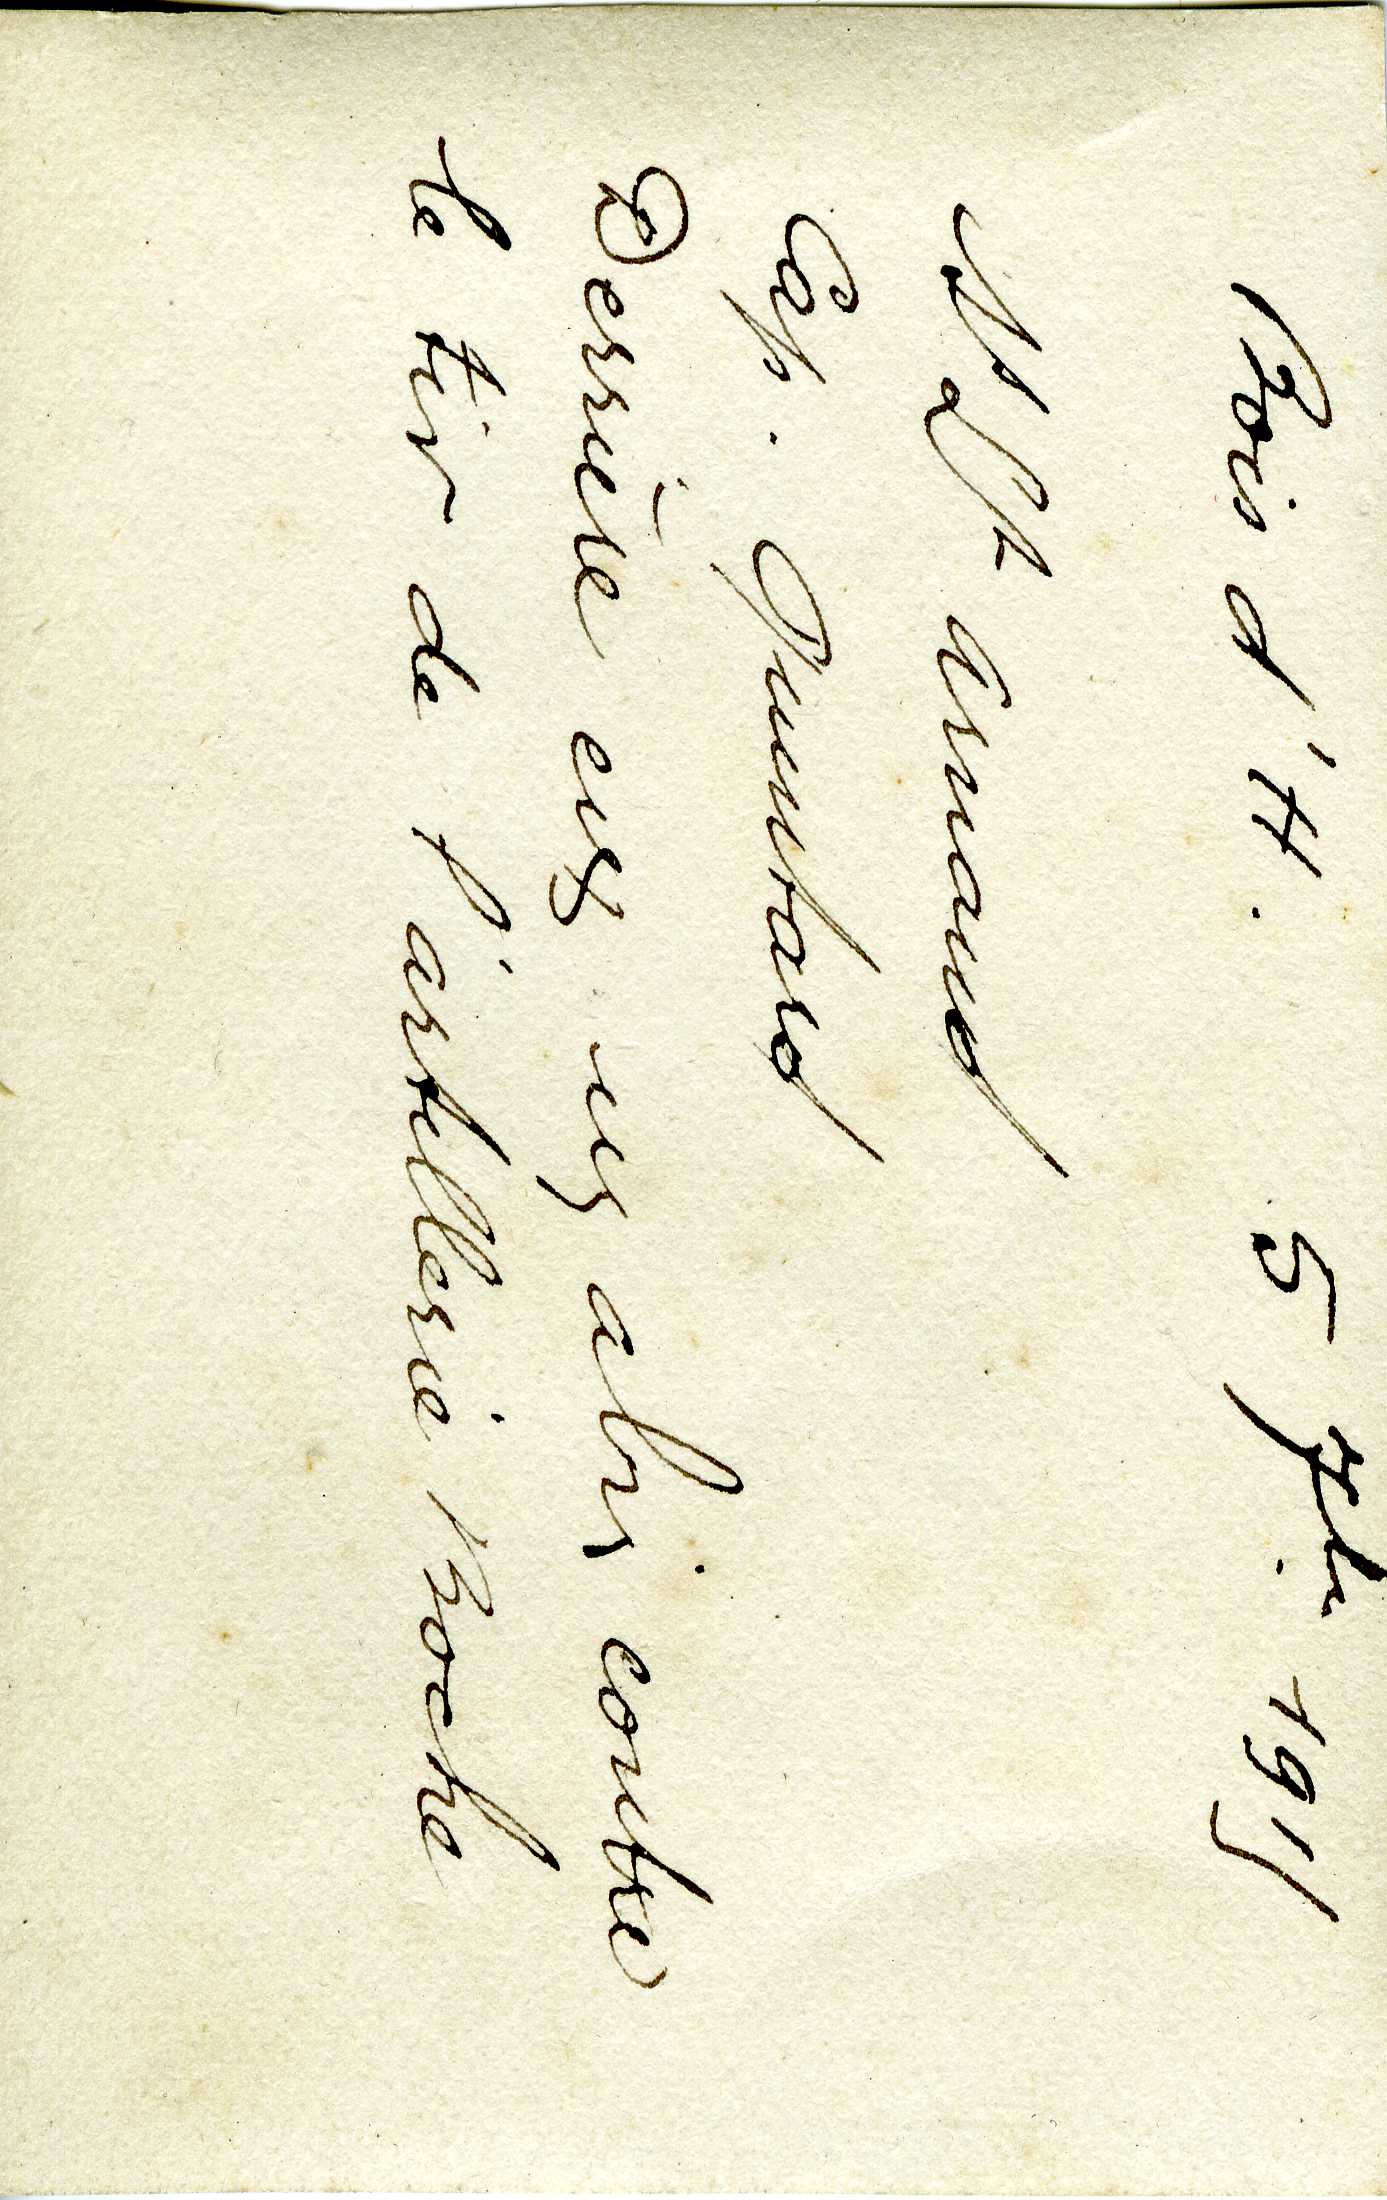 Bois d'H. 5 7bre 1915
S/Lt Armand
Cap.
Derrière eux un abri contre
le tir de l'artillerie Boche